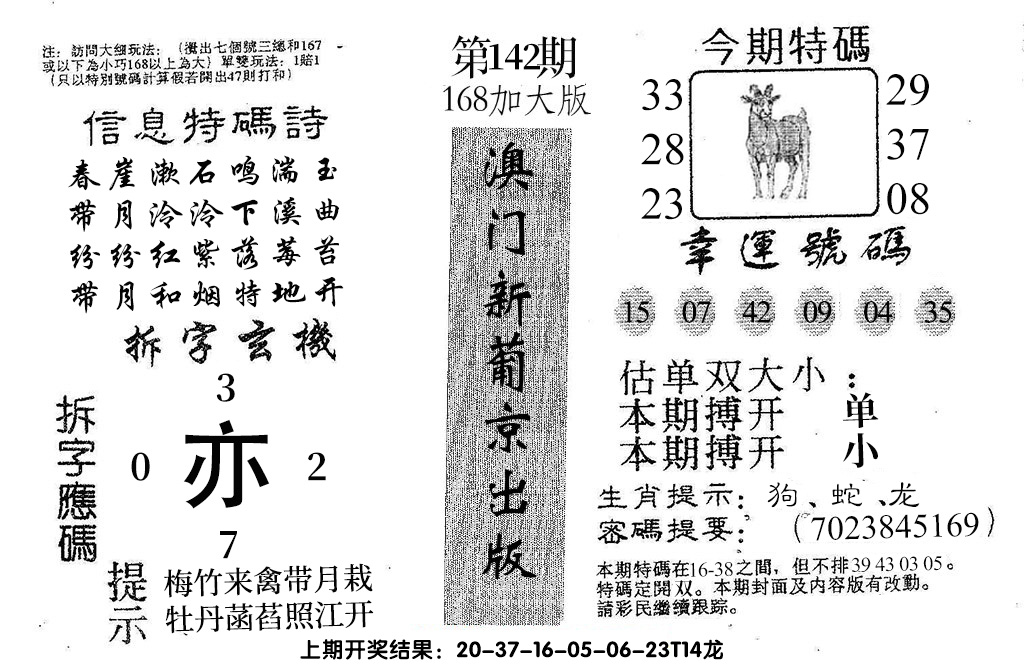 注：訪問大细玩法：(攪出七個號三總和167
或以下為小巧168以上為大）單雙玩法：1賠1
（只以特別號碼計算假若開出47則打和）
信息特碼詩
春崖漱石鸣湍玉
带月泠泠下溪曲
纷纷红紫落莓苔
带月和烟特地开
拆字玄機
拆字應碼
3
0 亦 2
7
提示
梅竹来禽带月栽
牡丹菡萏照江开
第142期
168加大版
澳门新葡京出版
今期特碼
33 29
28 37
23 08
幸運號碼
15 07 42 09 04 35
估单双大小：
本期搏开 单
本期搏开 小
生肖提示：狗、蛇、龙
密碼提要：（7023845169）
本期特碼在16-38之間，但不排39 43 03 05。
特碼定開双。本期封面及内容版有改動。
請彩民繼續跟踪。
上期开奖结果：20-37-16-05-06-23T14龙